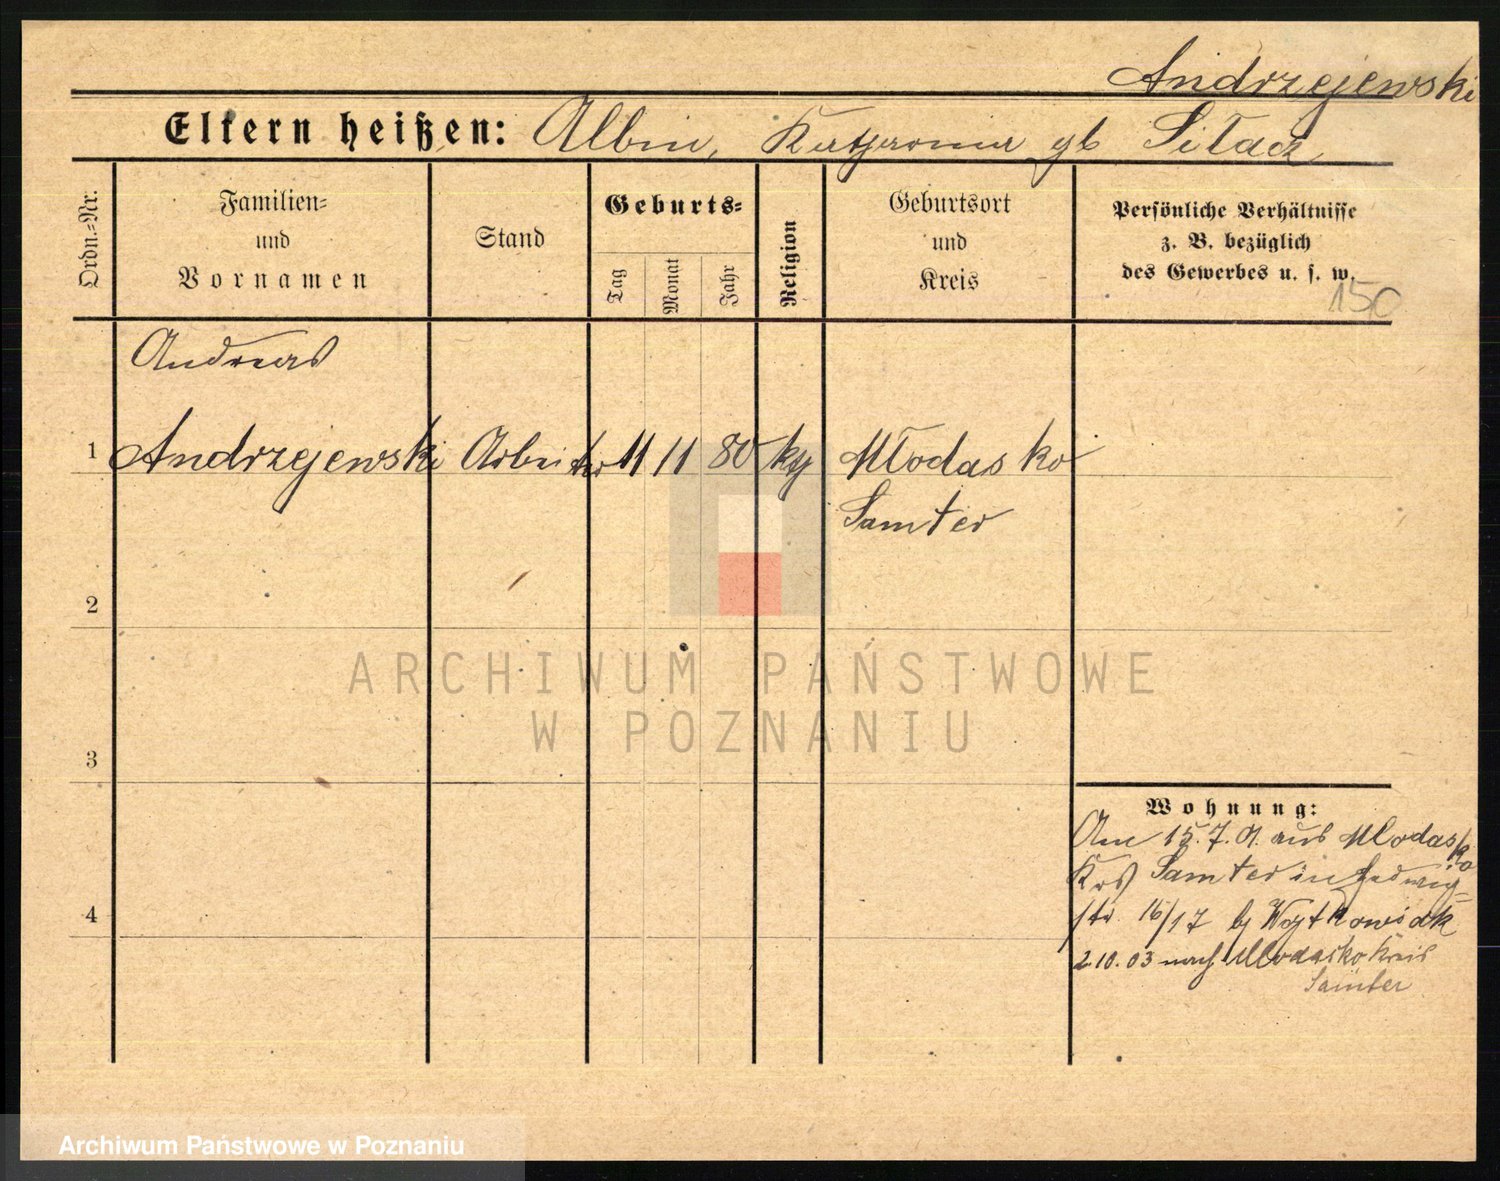 Andrzejewski
Eltern heißen: Albin, gb Sitacz
Ordn.-Nr.
Familien-
und
Vornamen
Stand
Geburts-
Tag
Monat
Jahr
Religion
Geburtsort
und
Kreis
Persönliche Verhältnisse
z. B. bezüglich
des Gewerbes u. s. w.
150
Andreas
1 Andrzejewski Arbeiter 11 11 80 kth Młodasko
Samter
2
3
4
Wohnung:
Am 15.7.01. aus Mlodasko
Krs Samter in Hedwig-
str. 16/17 bj Wojtkowiak
2 10. 03 nach Mlodasko Kreis
Samter
ARCHIWUM PAŃSTWOWE
W POZNANIU
Archiwum Państwowe w Poznaniu